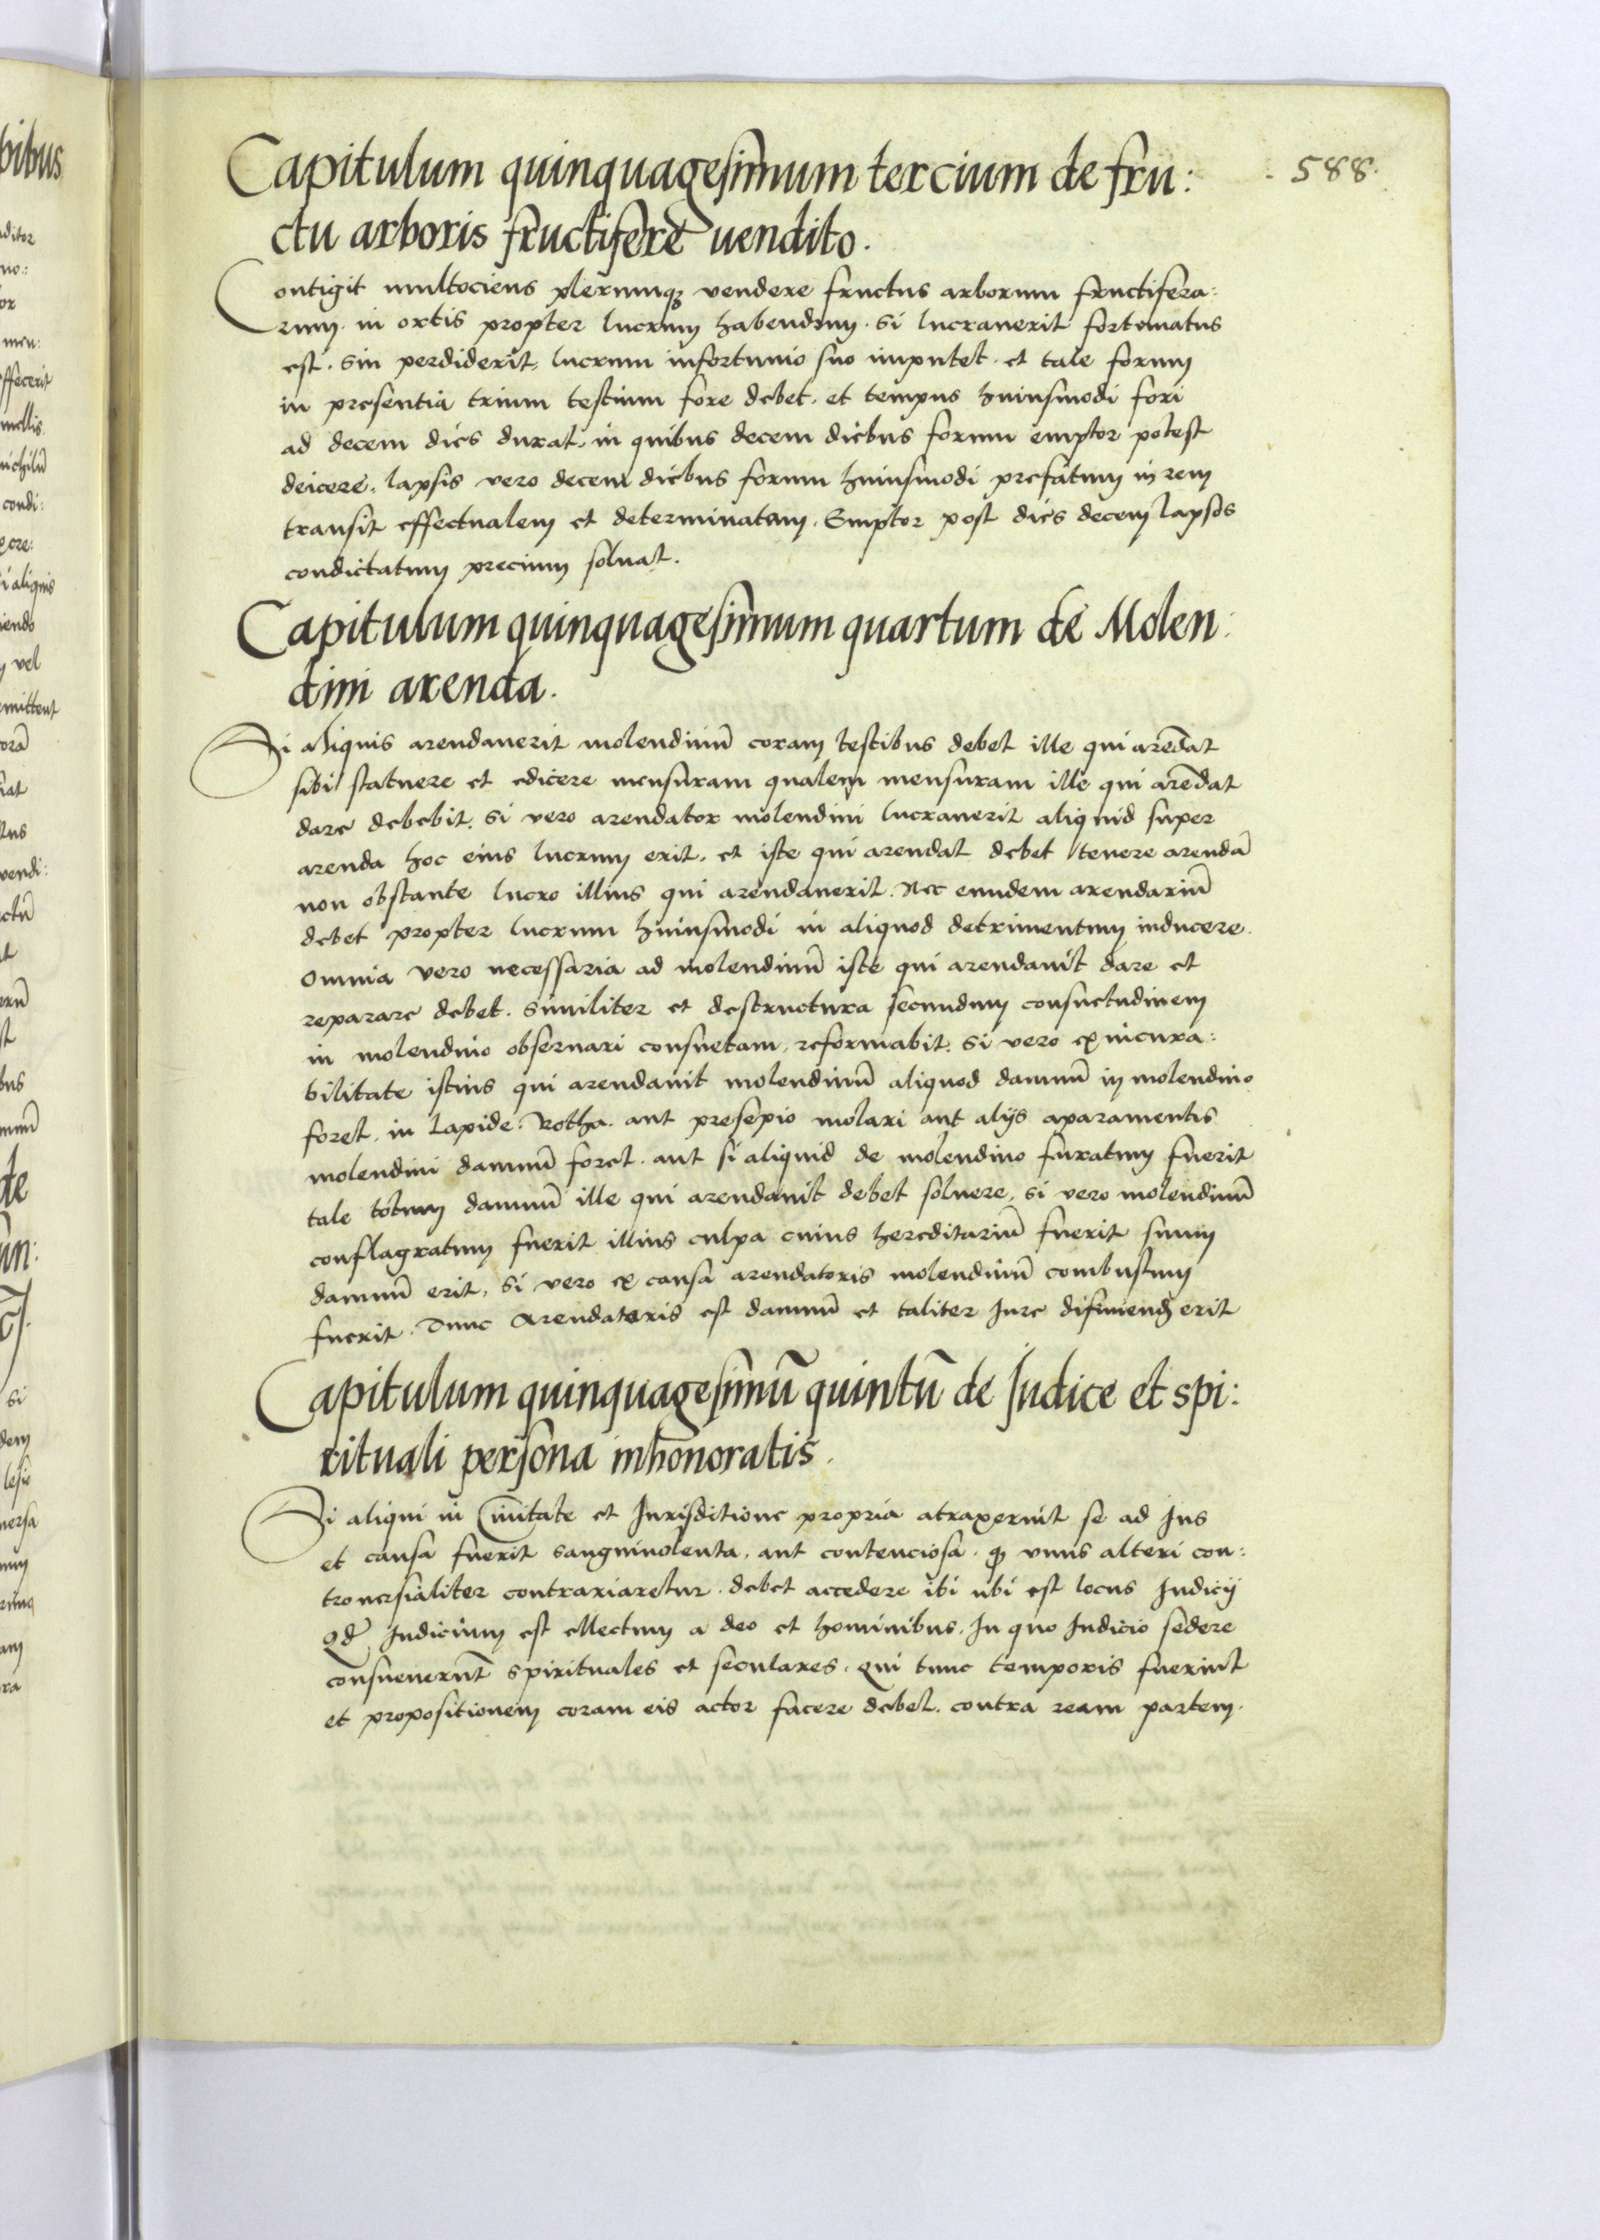 588.
Capitulum quinquagesimum tercium de fru:
ctu arboris fructifere uendito.
Contigit multociens plerumq; vendere fructus arborum fructifera:
rum. in ortis propter lucrum habendum. si lucrauerit fortunatus
est. sin perdiderit, lucrum infortunio suo imputet. et tale forum
in presentia trium testium fore debet. et tempus huiusmodi fori
ad decem dies durat. in quibus decem diebus forum emptor potest
deicere. lapsis vero decem diebus forum huiusmodi prefatum in rem
transit effectualem et determinatam. Emptor post dies decem lapsos
condictatum precium soluat.
Capitulum quinquagesimum quartum de Molen:
dini arenda.
Si aliquis arendauerit molendinū coram testibus debet ille qui arēdat
sibi statuere et edicere mensuram qualem mensuram ille qui arēdat
dare debebit. si vero arendator molendini lucrauerit aliquid super
arenda hoc eius lucrum erit. et iste qui arendat debet tenere arendā
non obstante lucro illius qui arendauerit. Nec eundem arendariū
debet propter lucrum huiusmodi in aliquod detrimentum inducere.
Omnia vero necessaria ad molendinū iste qui arendauit dare et
reparare debet. similiter et destructura secundum consuetudinem
in molendino obseruari consuetam, reformabit. si vero ex incura:
bilitate istius qui arendauit molendinū aliquod damnū in molendino
foret. in lapide. Rotha. aut presepio molari aut alijs aparamentis
molendini damnū foret. aut si aliquid de molendino furatum fuerit
tale totum damnū ille qui arendauit debet soluere. si vero molendinū
conflagratum fuerit illius culpa cuius hereditariū fuerit suum
damnū erit. si vero ex causa arendatoris molendinū combustum
fuerit. Tunc Arendatoris est damnū et taliter Jure difiniend erit
Capitulum quinquagesimū quintū de Judice et spi:
rituali persona inhonoratis.
Si aliqui in Ciuitate et Jurisditione propria atraxerint se ad Jus
et causa fuerit sanguinolenta, aut contenciosa. q; vnus alteri con:
trouersialiter contrariaretur. debet accedere ibi ubi est locus Judicij
Qd Judicium est ellectum a deo et hominibus. In quo Judicio sedere
consueuerūt spirituales et seculares. qui tunc temporis fuerint
et propositionem coram eis actor facere debet. contra ream partem.